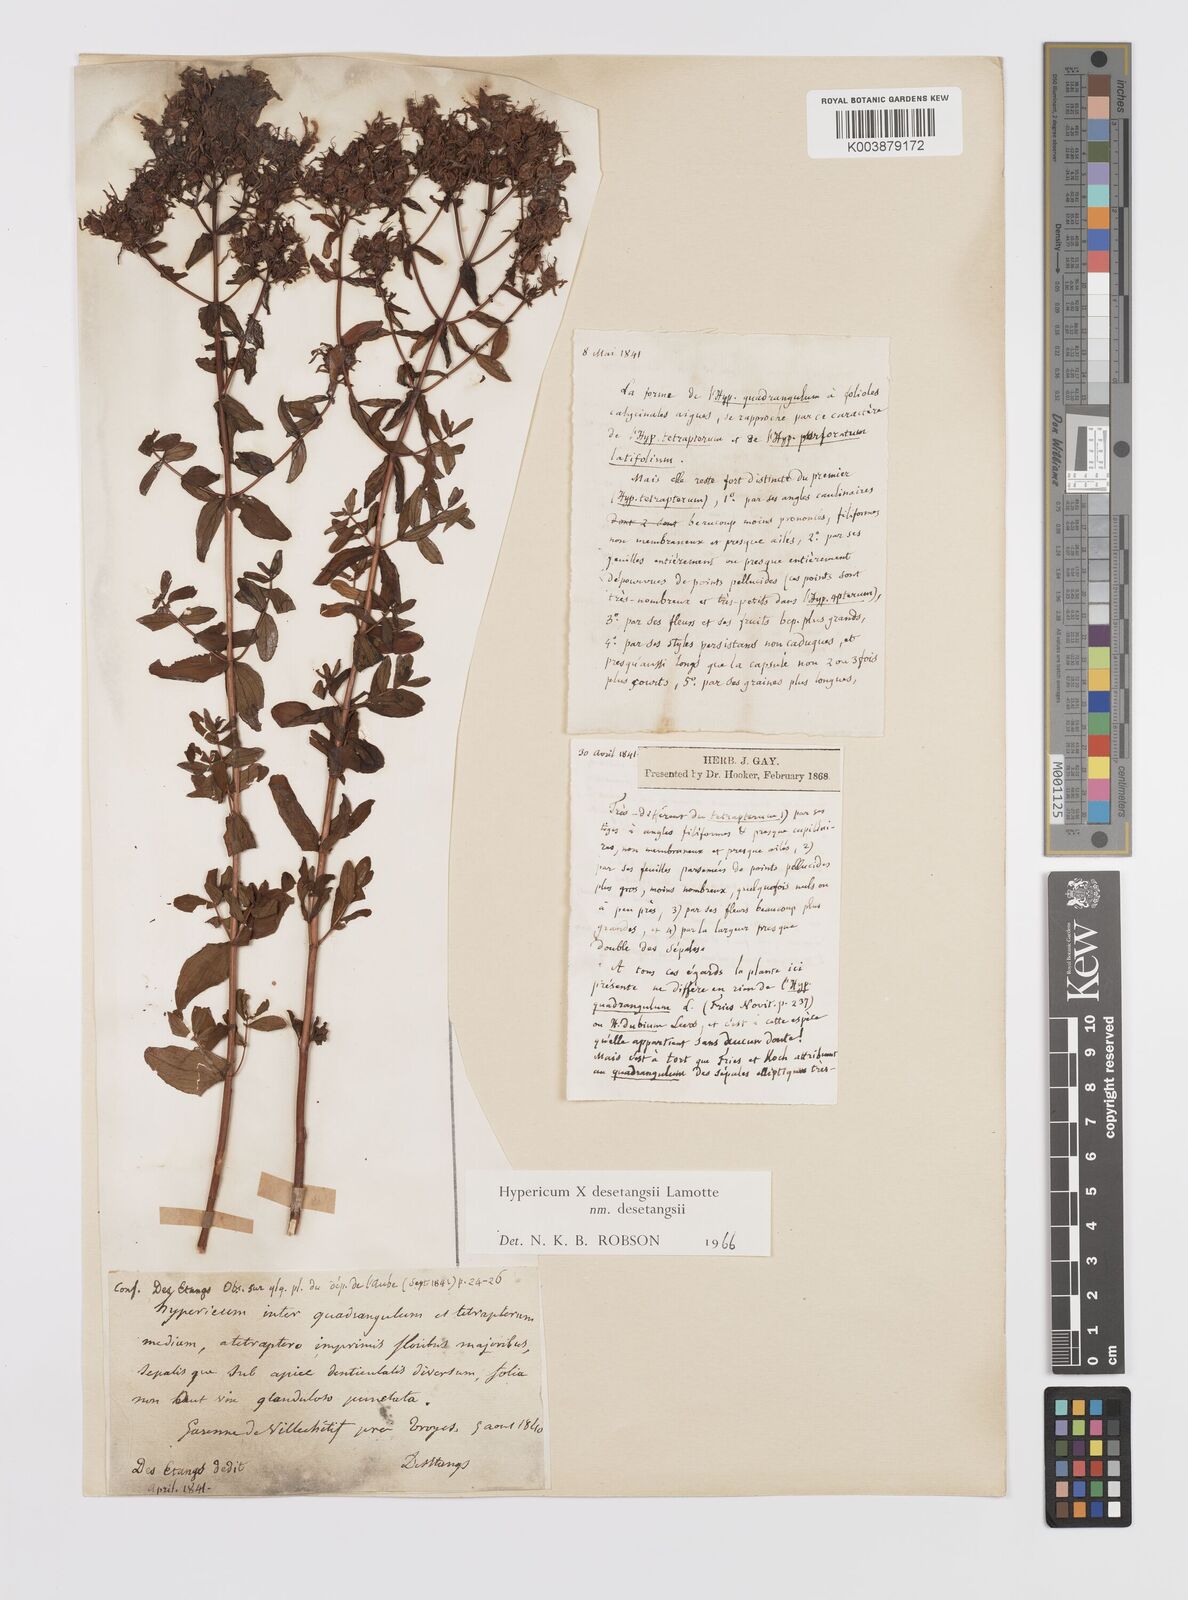 ROYAL BOTANIC GARDENS KEW
K003879172
8 Mai 1841
La forme de l'Hyp. quadrangulum à folioles
calycinales aigues, se rapproche par ce caractère
de l'Hyp. tetrapterum et de l'Hyp. perforatum
latifolium.
Mais elle reste fort distincte du premier
(Hyp. tetrapterum), 1º. par ses angles caulinaires
dont 2 sont beaucoup moins prononcés, filiformes
non membraneux et presque ailés, 2º. par ses
feuilles entièrement ou presque entièrement
dépourvues de points pellucides (ces points sont
très-nombreux et très-petits dans l'Hyp. apterum),
3º. par ses fleurs et ses fruits bcp. plus grands,
4º. par ses styles persistans non caduques, et
presqu'aussi longs que la capsule non 2 ou 3 fois
plus courts, 5º. par ses graines plus longues,
30 avril 1841.
HERB. J. GAY.
Presented by Dr. Hooker, February 1868.
Très-différent du tetrapterum 1) par ses
tiges à angles filiformes & presque capillai-
res, non membraneux et presque ailés, 2)
par ses feuilles parsemées de points pellucides
plus gros, moins nombreux, quelquefois nuls ou
à peu près, 3) par ses fleurs beaucoup plus
grandes, et 4) par la largeur presque
double des sépales.
A tous ces égards la plante ici
présente ne diffère en rien de l'Hyp.
quadrangulum L. (Fries Novit. p. 237)
ou H. dubium Leers, et c'est à cette espèce
qu'elle appartient sans aucun doute!
Mais c'est à tort que Fries et Koch attribuent
au quadrangulum des sépales elliptiques très-
Hypericum X desetangsii Lamotte
nm. desetangsii
Det. N. K. B. ROBSON 1966
Conf. Des Etangs Obs. sur qlq. pl. du dép. de l'Aube (Sept. 1841) p. 24-26
hypericum inter quadrangulum et tetrapterum
medium, a tetraptero imprimis floribus majoribus,
sepalis que sub apice denticulatis diversum, folia
non aut vix glanduloso punctata.
Garenne de Villechétif près Troyes. 5 aout 1840
Des Etangs dedit
DesEtangs
April. 1841.
inches
centimeters
Don Williams
Density
M001125
Royal Botanic Gardens
Kew
0 1 2 3 4 5 6 7 8 9 10
cm
copyright reserved